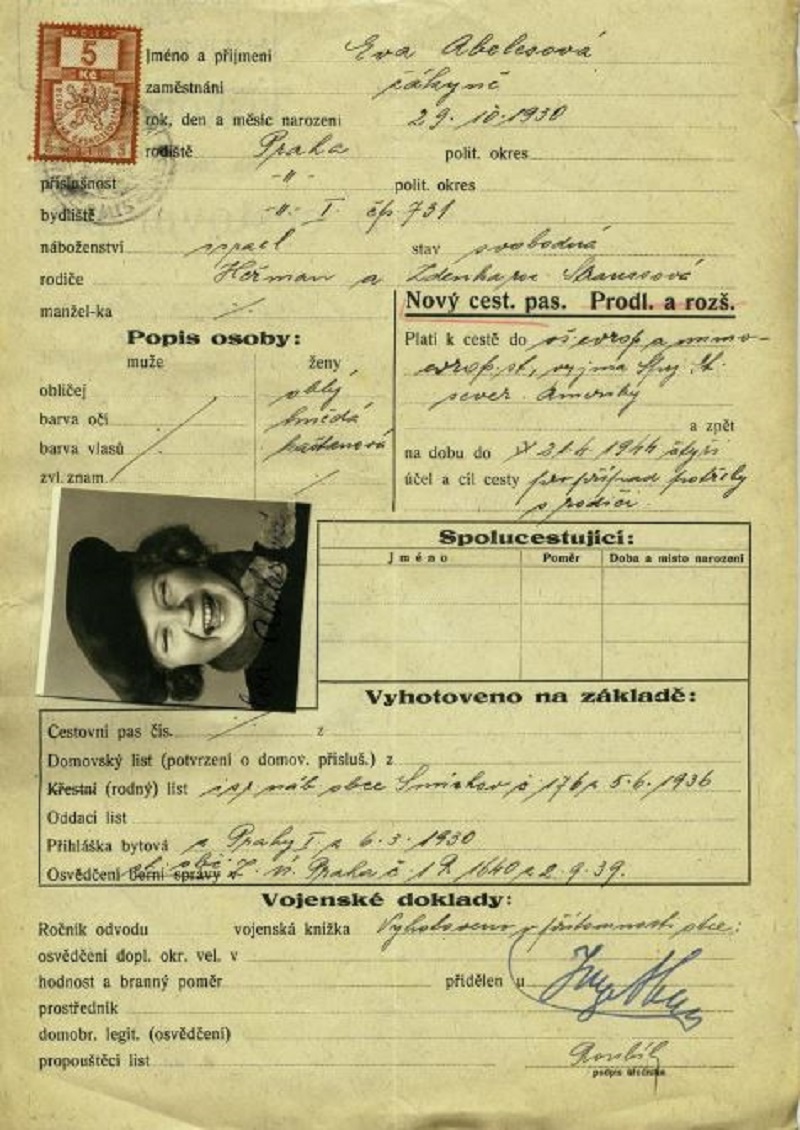 KOLEK
5
Kč
Jméno a příjmení Eva Abelesová
zaměstnání žákyně
rok, den a měsíc narození 29.10.1930
rodiště Praha polit. okres
příslušnost -"- polit. okres
bydliště -"- I. čp. 731
náboženství israel stav svobodná
rodiče Heřman a Zdenka roz. Straussová
manžel-ka
Nový cest. pas. Prodl. a rozš.
Popis osoby:
muže ženy
obličej oblý
barva očí hnědá
barva vlasů kaštanová
zvl. znam.
Platí k cestě do vš. evrop. a mimo-
evrop. st., vyjma Spoj. St.
sever. Ameriky
a zpět
na dobu do 21.4.1944 čtyři
účel a cíl cesty pro případ potřeby
s rodiči.
Spolucestující:
Jméno Poměr Doba a místo narození
Vyhotoveno na základě:
Cestovní pas čís. z
Domovský list (potvrzení o domov. přísluš.) z
Křestní (rodný) list isr. náb. obce Smíchov č 176 z 5.6.1936
Oddací list
Přihláška bytová z Prahy I z 6.3.1930
Osvědčení berní správy Praha č 1640 z 2.9.39.
Vojenské doklady:
Ročník odvodu vojenská knížka Vyhotoveno v přítomnosti otce:
osvědčení dopl. okr. vel. v
hodnost a branný poměr přidělen u
prostředník
domobr. legit. (osvědčení)
propouštěcí list
podpis úředníka